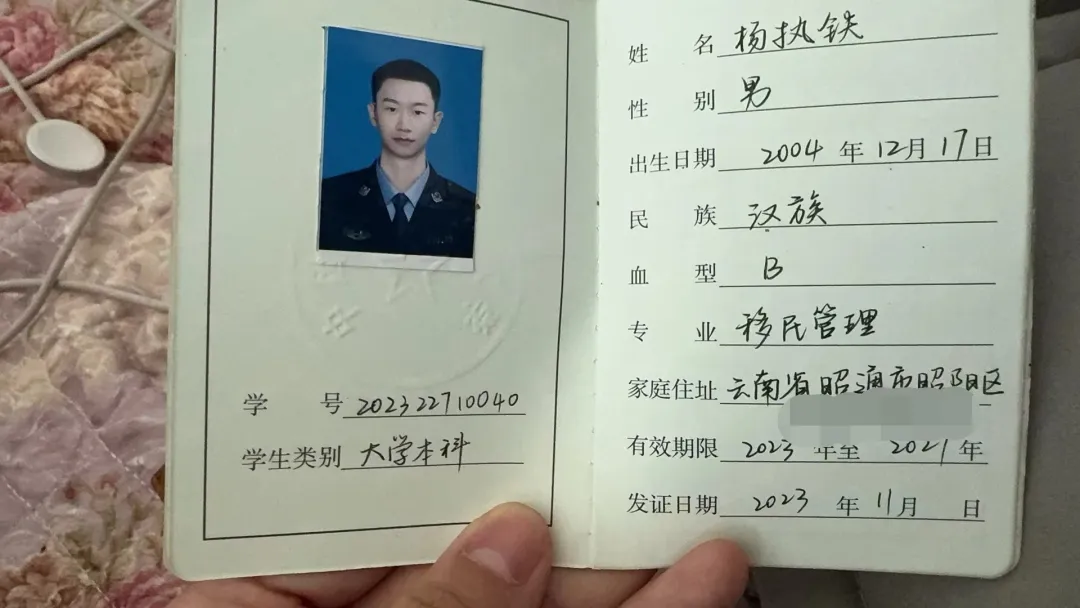 学 号 202322710040
学生类别 大学本科
姓 名 杨执铁
性 别 男
出生日期 2004 年 12 月 17 日
民 族 汉族
血 型 B
专 业 移民管理
家庭住址 云南省昭通市昭阳区
有效期限 2023 年至 2021 年
发证日期 2023 年 11 月 日